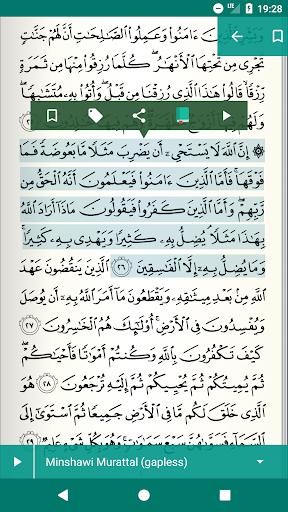 19:28
LTE
وَبَشِّرِ ٱلَّذِينَ ءَامَنُوا۟ وَعَمِلُوا۟ ٱلصَّـٰلِحَـٰتِ أَنَّ لَهُمْ جَنَّـٰتٍ
تَجْرِى مِن تَحْتِهَا ٱلْأَنْهَـٰرُ ۖ كُلَّمَا رُزِقُوا۟ مِنْهَا مِن ثَمَرَةٍ
رِّزْقًا ۙ قَالُوا۟ هَـٰذَا ٱلَّذِى رُزِقْنَا مِن قَبْلُ ۖ وَأُتُوا۟ بِهِۦ مُتَشَـٰبِهًا ۖ
وَلَهُمْ
۞ إِنَّ ٱللَّهَ لَا يَسْتَحْىِۦٓ أَن يَضْرِبَ مَثَلًا مَّا بَعُوضَةً فَمَا
فَوْقَهَا ۚ فَأَمَّا ٱلَّذِينَ ءَامَنُوا۟ فَيَعْلَمُونَ أَنَّهُ ٱلْحَقُّ مِن
رَّبِّهِمْ ۖ وَأَمَّا ٱلَّذِينَ كَفَرُوا۟ فَيَقُولُونَ مَاذَآ أَرَادَ ٱللَّهُ
بِهَـٰذَا مَثَلًا ۘ يُضِلُّ بِهِۦ كَثِيرًا وَيَهْدِى بِهِۦ كَثِيرًا ۚ
وَمَا يُضِلُّ بِهِۦٓ إِلَّا ٱلْفَـٰسِقِينَ ٢٦ ٱلَّذِينَ يَنقُضُونَ عَهْدَ
ٱللَّهِ مِنۢ بَعْدِ مِيثَـٰقِهِۦ وَيَقْطَعُونَ مَآ أَمَرَ ٱللَّهُ بِهِۦٓ أَن يُوصَلَ
وَيُفْسِدُونَ فِى ٱلْأَرْضِ ۚ أُو۟لَـٰٓئِكَ هُمُ ٱلْخَـٰسِرُونَ ٢٧
كَيْفَ تَكْفُرُونَ بِٱللَّهِ وَكُنتُمْ أَمْوَٰتًا فَأَحْيَـٰكُمْ ۖ
ثُمَّ يُمِيتُكُمْ ثُمَّ يُحْيِيكُمْ ثُمَّ إِلَيْهِ تُرْجَعُونَ ٢٨ هُوَ
ٱلَّذِى خَلَقَ لَكُم مَّا فِى ٱلْأَرْضِ جَمِيعًا ثُمَّ ٱسْتَوَىٰٓ إِلَى
ٱلسَّمَآءِ فَسَوَّىٰهُنَّ سَبْعَ سَمَـٰوَٰتٍ ۚ وَهُوَ بِكُلِّ شَىْءٍ عَلِيمٌ
Minshawi Murattal (gapless)